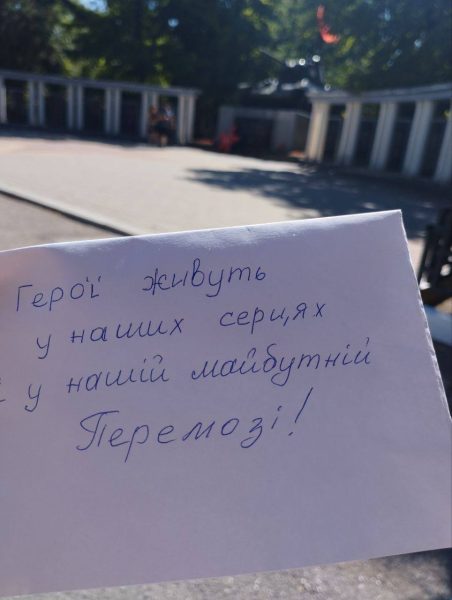 Герої живуть
у наших серцях
і у нашій майбутній
Перемозі!